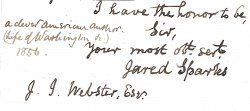 I have the honor to be
a clever American author.
Sir,
(Life of Washington &c)
Your most obt. servt.
1856.
Jared Sparks
J. J. Webster, Esqr.